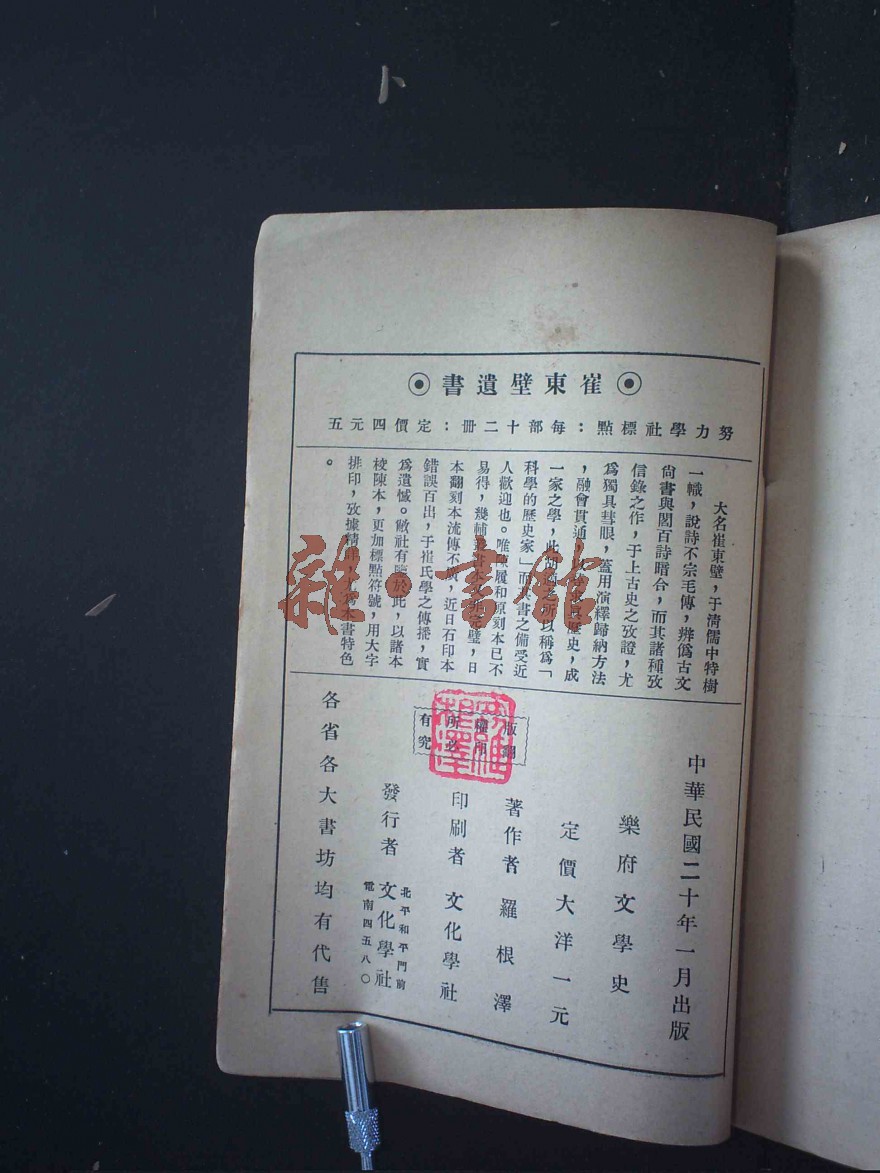 崔東壁遺書
努力學社標點：每部十二冊：定價四元五
大名崔東壁，于清儒中特樹
一幟，說詩不宗毛傳，辨僞古文
尙書與閻百詩暗合，而其諸種攷
信錄之作，于上古史之攷證，尤
爲獨具彗眼，蓋用演釋歸納方法
，融會貫通，歷史，成
一家之學，此胡適之所以稱爲「
科學的歷史家」而書之備受近
人歡迎也。唯陳履和原刻本已不
易得，幾輔叢書本又非完璧，日
本翻刻本流傳不廣，近日石印本
錯誤百出，于崔氏學之傳播，實
爲遺憾。敝社有鑒於此，以諸本
校陳本，更加標點符號，用大字
排印，攷據精詳，尤爲本書特色
。
中華民國二十年一月出版
樂府文學史
定價大洋一元
版權所有
翻印必究
著作者 羅根澤
印刷者 文化學社
發行者 文化學社
北平和平門前
電南四五八〇
各省各大書坊均有代售
羅根澤印
雜·書館